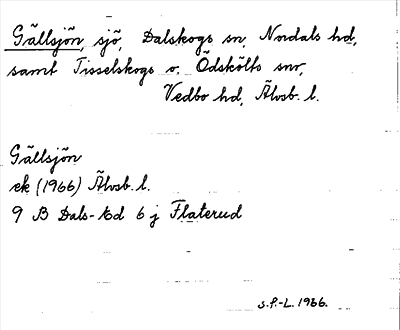 Gällsjön, sjö, Dalskogs sn, Nordals hd,
samt Tisselskogs o. Ödskölts snr,
Vedbo hd, Älvsb. l.
Gällsjön
ek (1966) Älvsb. l.
9 B Dals-Ed 6 j Flaterud
S.P.-L. 1966.